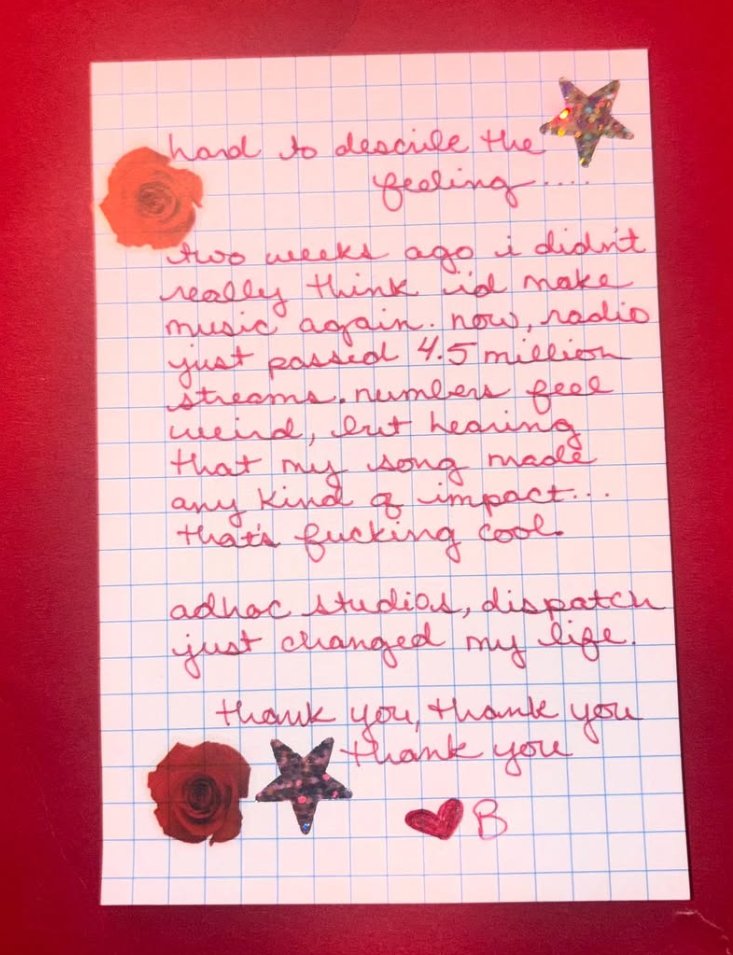 hard to describe the
feeling....
two weeks ago i didn't
really think i'd make
music again. now, radio
just passed 4.5 million
streams. numbers feel
weird, but hearing
that my song made
any kind of impact...
that's fucking cool.
adhoc studios, dispatch
just changed my life.
thank you, thank you
thank you
♥ B